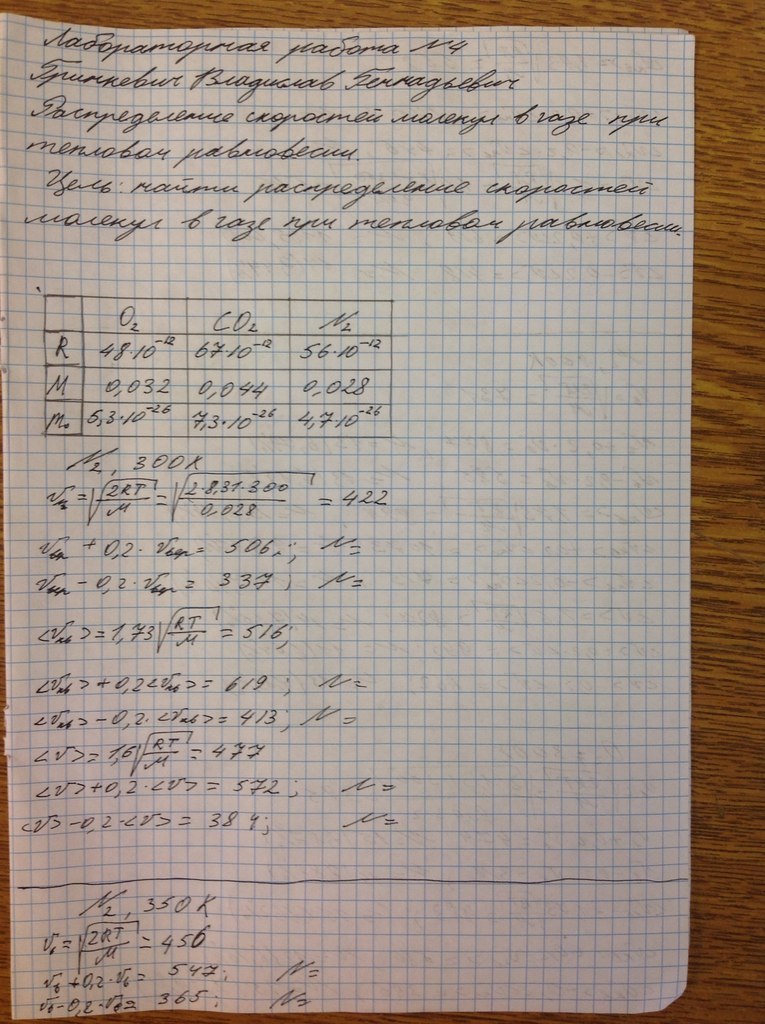 Лабораторная работа №4
Гринкевич Владислав Геннадьевич
Распределение скоростей молекул в газе при
тепловом равновесии.
Цель: найти распределение скоростей
молекул в газе при тепловом равновесии.
O₂ CO₂ N₂
R 48·10⁻¹² 67·10⁻¹² 56·10⁻¹²
M 0,032 0,044 0,028
m₀ 5,3·10⁻²⁶ 7,3·10⁻²⁶ 4,7·10⁻²⁶
N₂, 300К
v = √(2RT/M) = √(2·8,31·300/0,028) = 422
vвер + 0,2·vвер = 506; N=
vвер − 0,2·vвер = 337; N=
<vкв> = 1,73√(RT/M) = 516;
<vкв> + 0,2<vкв> = 619; N=
<vкв> − 0,2·<vкв> = 413; N=
<v> = 1,6√(RT/M) = 477
<v> + 0,2·<v> = 572; N=
<v> − 0,2·<v> = 384; N=
N₂, 350К
vв = √(2RT/M) = 456
vв + 0,2·vв = 547; N=
vв − 0,2·vв = 365; N=